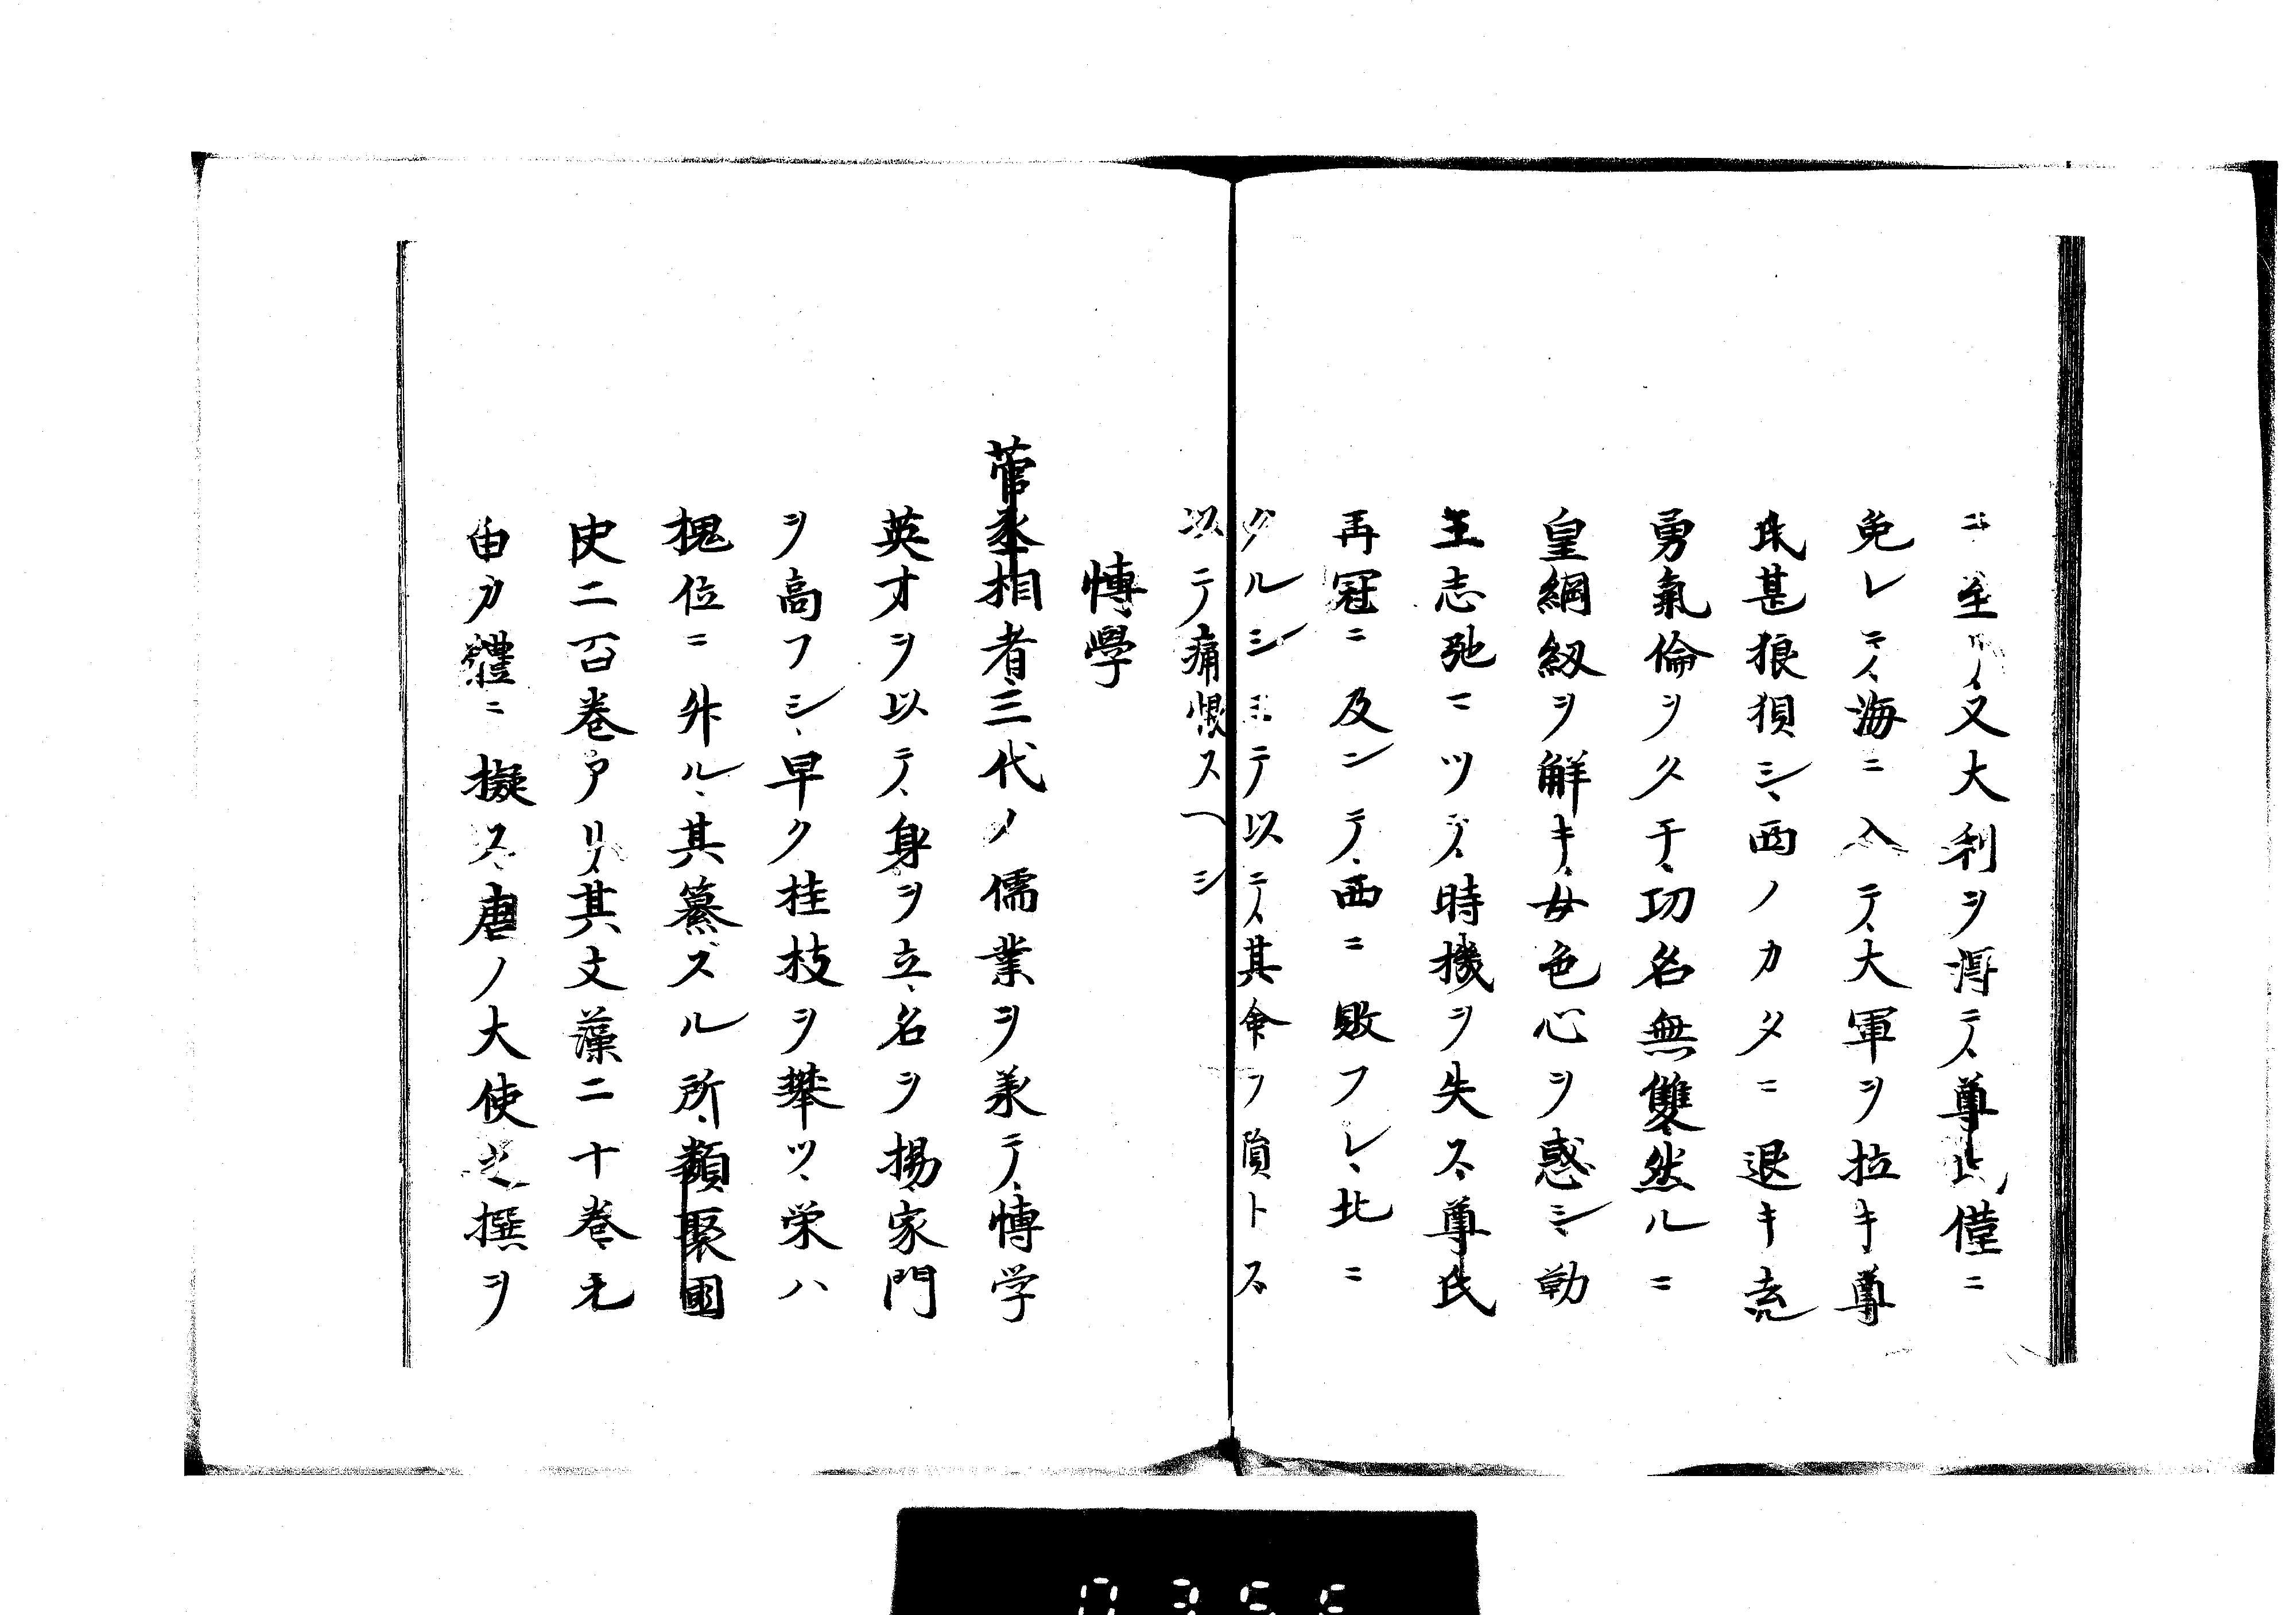 ニ至リ、又大利ヲ得テ、尊氏僅ニ
免レテ、海ニ入テ、大軍ヲ拉キ尊
氏甚狼狽シ、西ノカタニ退キ走
勇氣倫ヲクチ、功名無雙、然ルニ
皇綱紐ヲ解キ、女色心ヲ惑シ、勤
王志弛ニツヅ、時機ヲ失ス、尊氏
再冦ニ及ンテ、西ニ敗フレ、北ニ
クルシミテ以テ、其命ヲ隕トス
以テ痛恨スヘシ
博學
菅丞相者、三代ノ儒業ヲ承テ、博学
英才ヲ以テ、身ヲ立、名ヲ揚、家門
ヲ高フシ、早ク桂枝ヲ攀ツ、栄ハ
槐位ニ升ル、其纂ズル所、類聚國
史二百巻アリ、其文藻二十巻、元
白カ體ニ擬ス、唐ノ大使之撰ヲ